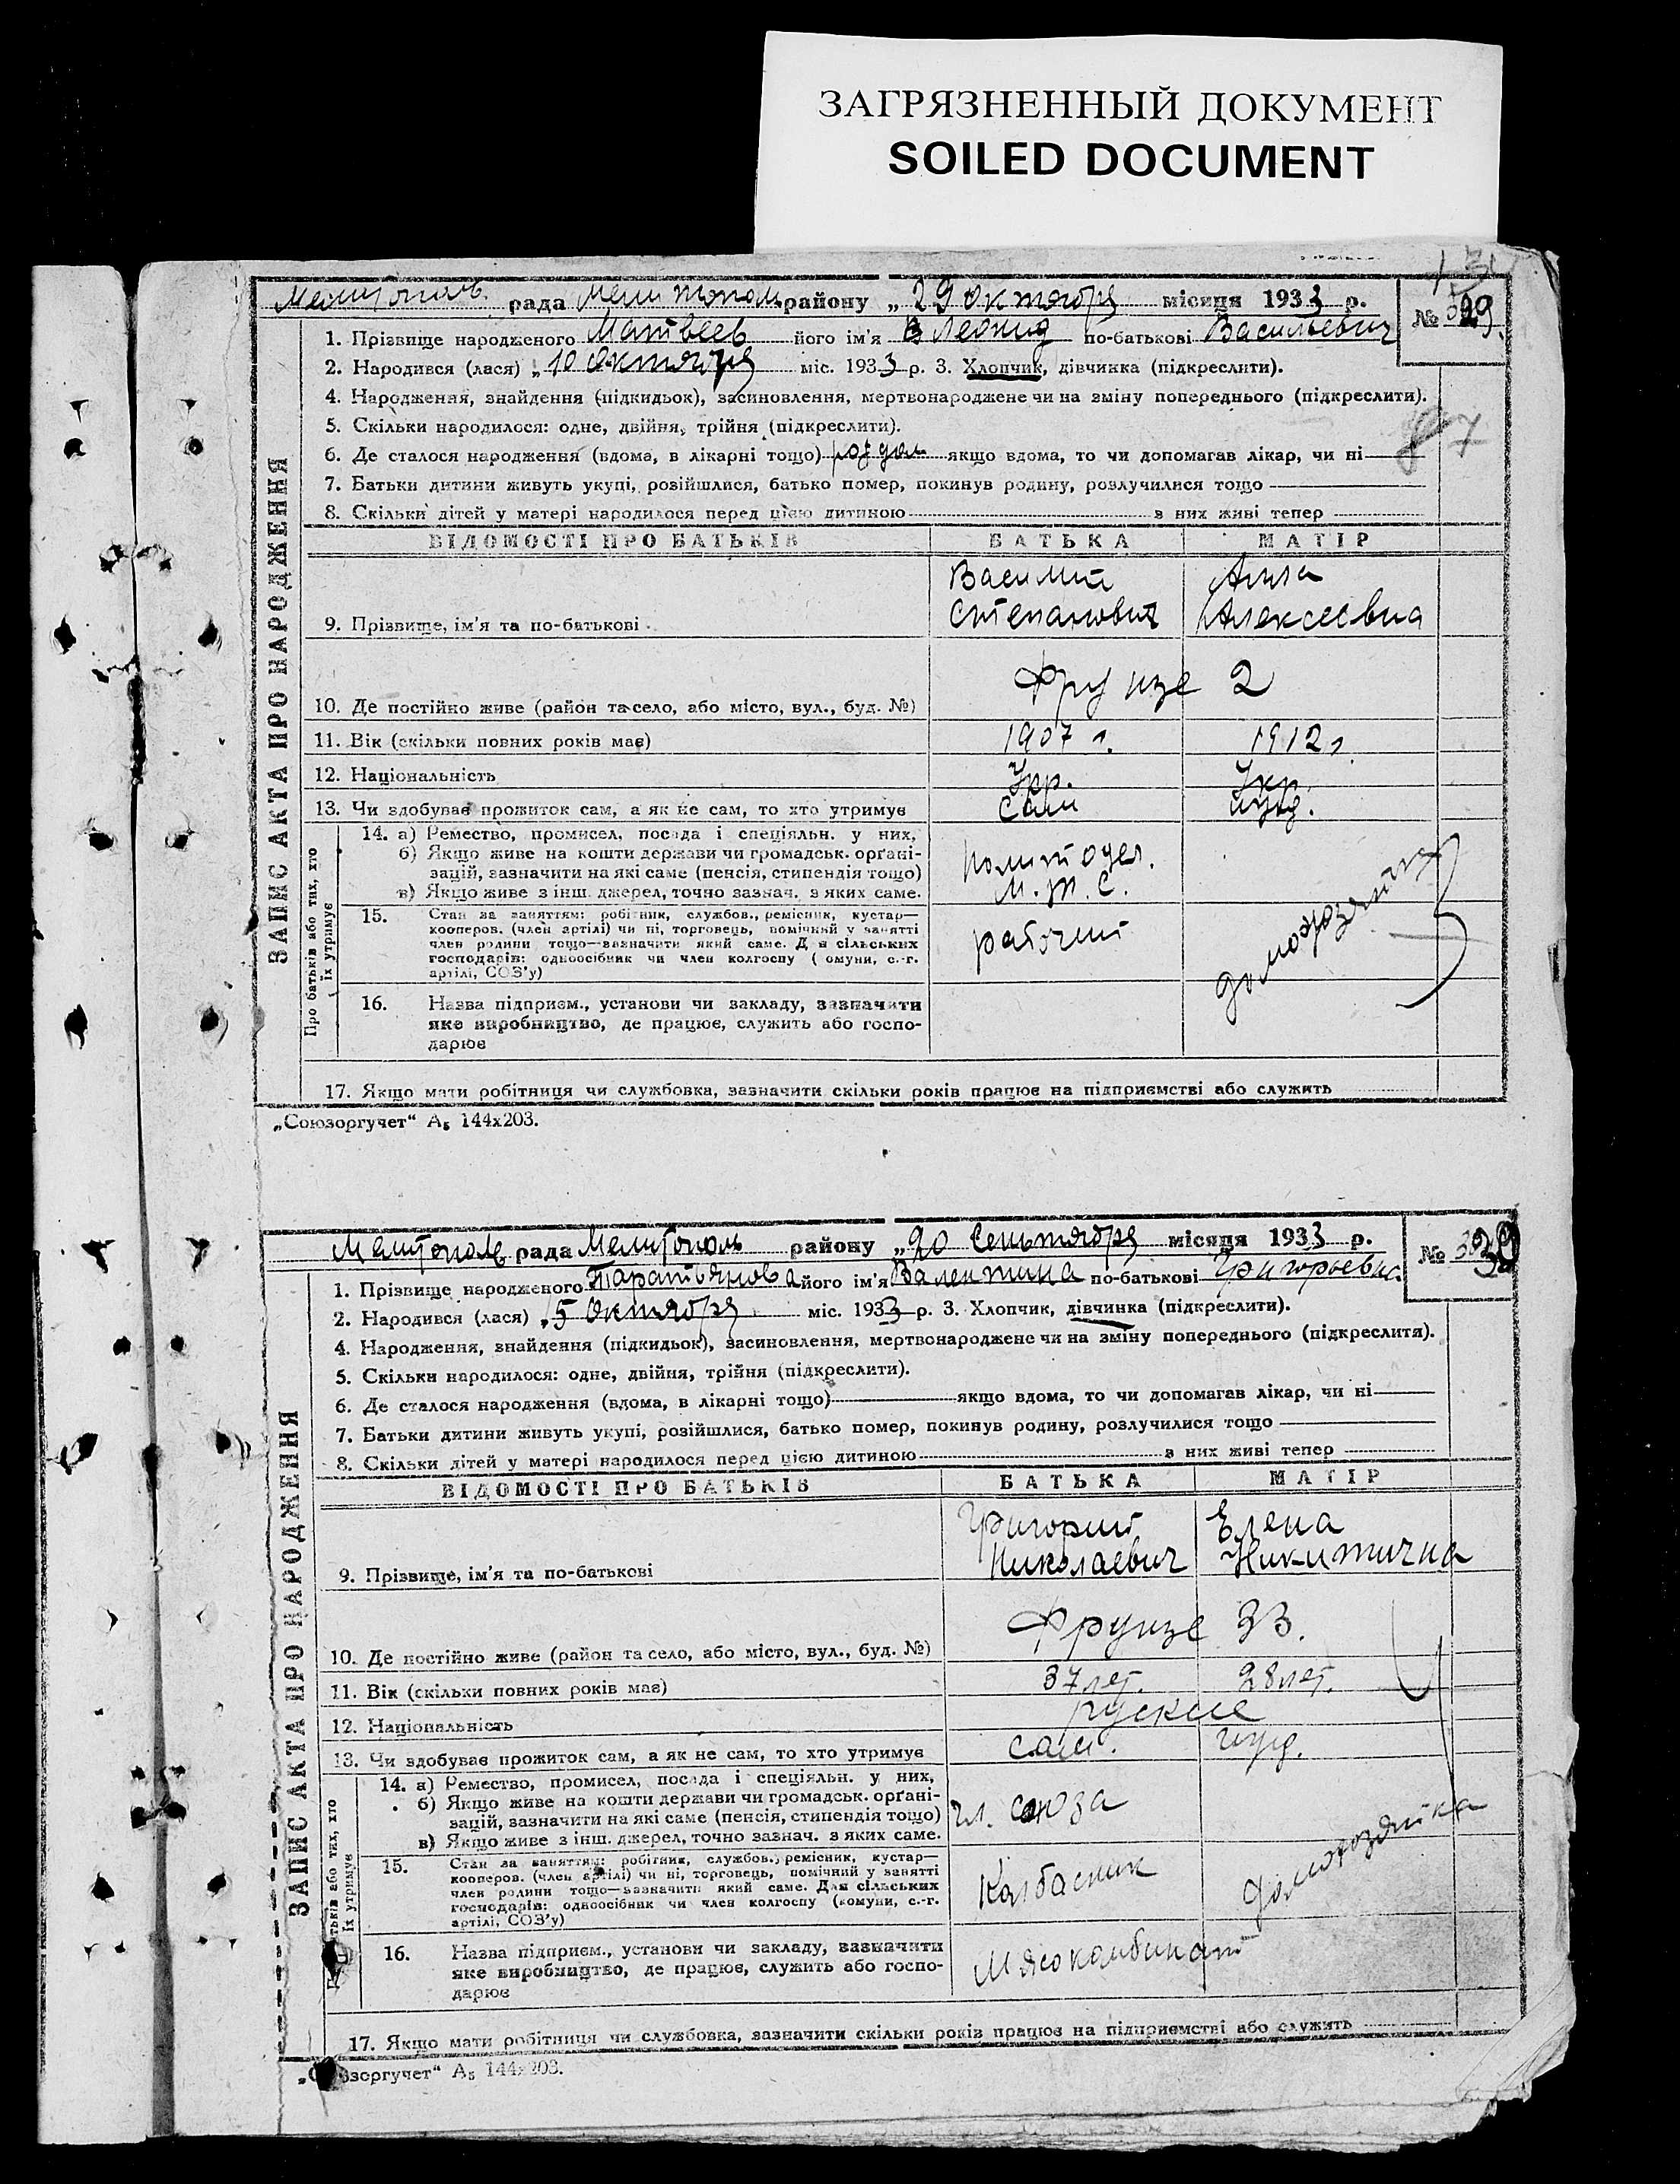 ЗАГРЯЗНЕННЫЙ ДОКУМЕНТ
SOILED DOCUMENT
Мелитополь рада Мелитополь району „29 октября місяця 1933 р.
№ 29
1. Прізвище народженого Матвеев його ім'я Леонид по-батькові Васильевич
2. Народився (лася) „10 октября міс. 1933 р. 3. Хлопчик, дівчинка (підкреслити).
4. Народження, знайдення (підкидьок), засиновлення, мертвонароджене чи на зміну попереднього (підкреслити).
5. Скільки народилося: одне, двійня, трійня (підкреслити).
6. Де сталося народження (вдома, в лікарні тощо) роддом якщо вдома, то чи допомагав лікар, чи ні
7. Батьки дитини живуть укупі, розійшлися, батько помер, покинув родину, розлучилися тощо
8. Скільки дітей у матері народилося перед цією дитиною з них живі тепер
ЗАПИС АКТА ПРО НАРОДЖЕННЯ
ВІДОМОСТІ ПРО БАТЬКІВ БАТЬКА МАТІР
Василий Анна
9. Прізвище, ім'я та по-батькові Степанович Алексеевна
10. Де постійно живе (район та село, або місто, вул., буд. №) Фрунзе 2
11. Вік (скільки повних років має) 1907 г. 1912 г.
12. Національність Укр. Укр.
13. Чи здобуває прожиток сам, а як не сам, то хто утримує сам ижд.
Про батьків або тих, хто їх утримує
14. а) Ремество, промисел, посада і спеціяльн. у них,
б) Якщо живе на кошти держави чи громадськ. орґані-
зацій, зазначити на які саме (пенсія, стипендія тощо)
в) Якщо живе з інш. джерел, точно зазнач. з яких саме.
политотдел.
М.Т.С.
15. Стан за заняттям: робітник, службов., ремісник, кустар—
кооперов. (член артілі) чи ні, торговець, помічний у занятті
член родини тощо—зазначити який саме. Для сільських
господарів: одноосібник чи член колгоспу (комуни, с.-г.
артілі, СОЗ'у)
рабочий
домохозяйка
16. Назва підприєм., установи чи закладу, зазначити
яке виробництво, де працює, служить або госпо-
дарює
17. Якщо мати робітниця чи службовка, зазначити скільки років працює на підприємстві або служить
„Союзоргучет“ А5 144х203.
Мелитополь рада Мелитополь району „20 Сентября місяця 1933 р.
№ 30
1. Прізвище народженого Таратьянова його ім'я Валентина по-батькові Григорьевн.
2. Народився (лася) „5 октября міс. 1933 р. 3. Хлопчик, дівчинка (підкреслити).
4. Народження, знайдення (підкидьок), засиновлення, мертвонароджене чи на зміну попереднього (підкреслити).
5. Скільки народилося: одне, двійня, трійня (підкреслити).
6. Де сталося народження (вдома, в лікарні тощо) якщо вдома, то чи допомагав лікар, чи ні
7. Батьки дитини живуть укупі, розійшлися, батько помер, покинув родину, розлучилися тощо
8. Скільки дітей у матері народилося перед цією дитиною з них живі тепер
ЗАПИС АКТА ПРО НАРОДЖЕННЯ
ВІДОМОСТІ ПРО БАТЬКІВ БАТЬКА МАТІР
Григорий Елена
9. Прізвище, ім'я та по-батькові Николаевич Никитична
10. Де постійно живе (район та село, або місто, вул., буд. №) Фрунзе 33.
11. Вік (скільки повних років має) 37 лет. 28 лет.
12. Національність руские
13. Чи здобуває прожиток сам, а як не сам, то хто утримує сам. ижд.
14. а) Ремество, промисел, посада і спеціяльн. у них,
б) Якщо живе на кошти держави чи громадськ. орґані-
зацій, зазначити на які саме (пенсія, стипендія тощо)
в) Якщо живе з інш. джерел, точно зазнач. з яких саме.
чл. союза
15. Стан за заняттям: робітник, службов., ремісник, кустар—
кооперов. (член артілі) чи ні, торговець, помічний у занятті
член родини тощо—зазначити який саме. Для сільських
господарів: одноосібник чи член колгоспу (комуни, с.-г.
артілі, СОЗ'у)
Колбасник
домохозяйка
16. Назва підприєм., установи чи закладу, зазначити
яке виробництво, де працює, служить або госпо-
дарює
Мясокомбинат
17. Якщо мати робітниця чи службовка, зазначити скільки років працює на підприємстві або служить
зоргучет“ А5 144х203.